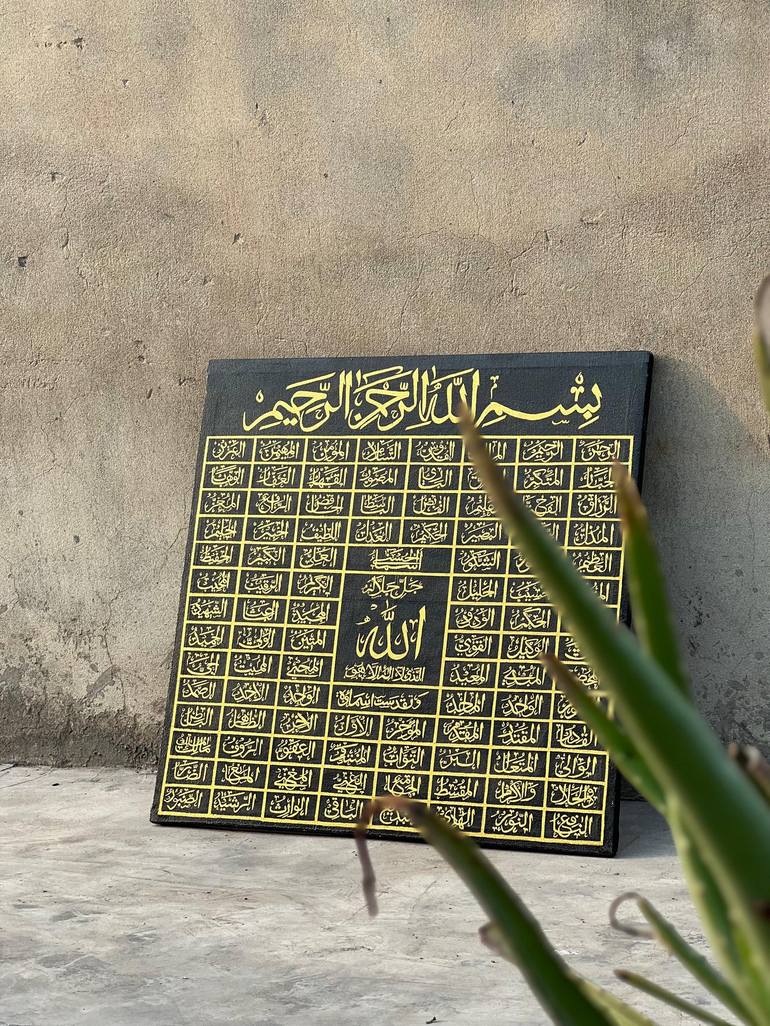 بسم الله الرحمن الرحيم
الرحمن الرحيم القدوس السلام المؤمن المهيمن العزيز
الجبار المتكبر الباري المصور القهار الغفار الوهاب
الرزاق الفتاح العليم القابض الباسط الخافض الرافع المعز
المذل البصير الحكيم العدل اللطيف الخبير الحليم
العظيم الشكور العلي الكبير الحفيظ
الجليل جل جلاله الكريم الرقيب المجيب
الحكيم الودود الله المجيد الباعث الشهيد
الوكيل القوي المتين الولي الحميد
المعيد المحيي المميت الحي
الواجد الماجد وتقدست اسمائه الواحد الاحد الصمد
القادر المقتدر المقدم المؤخر الاول الاخر الظاهر الباطن
الوالي المتعال البر التواب المنتقم العفو الرؤف مالك الملك
ذوالجلال والاكرام المقسط الجامع الغني المغني المانع الضار
النافع النور الهادي الباقي الوارث الرشيد الصبور